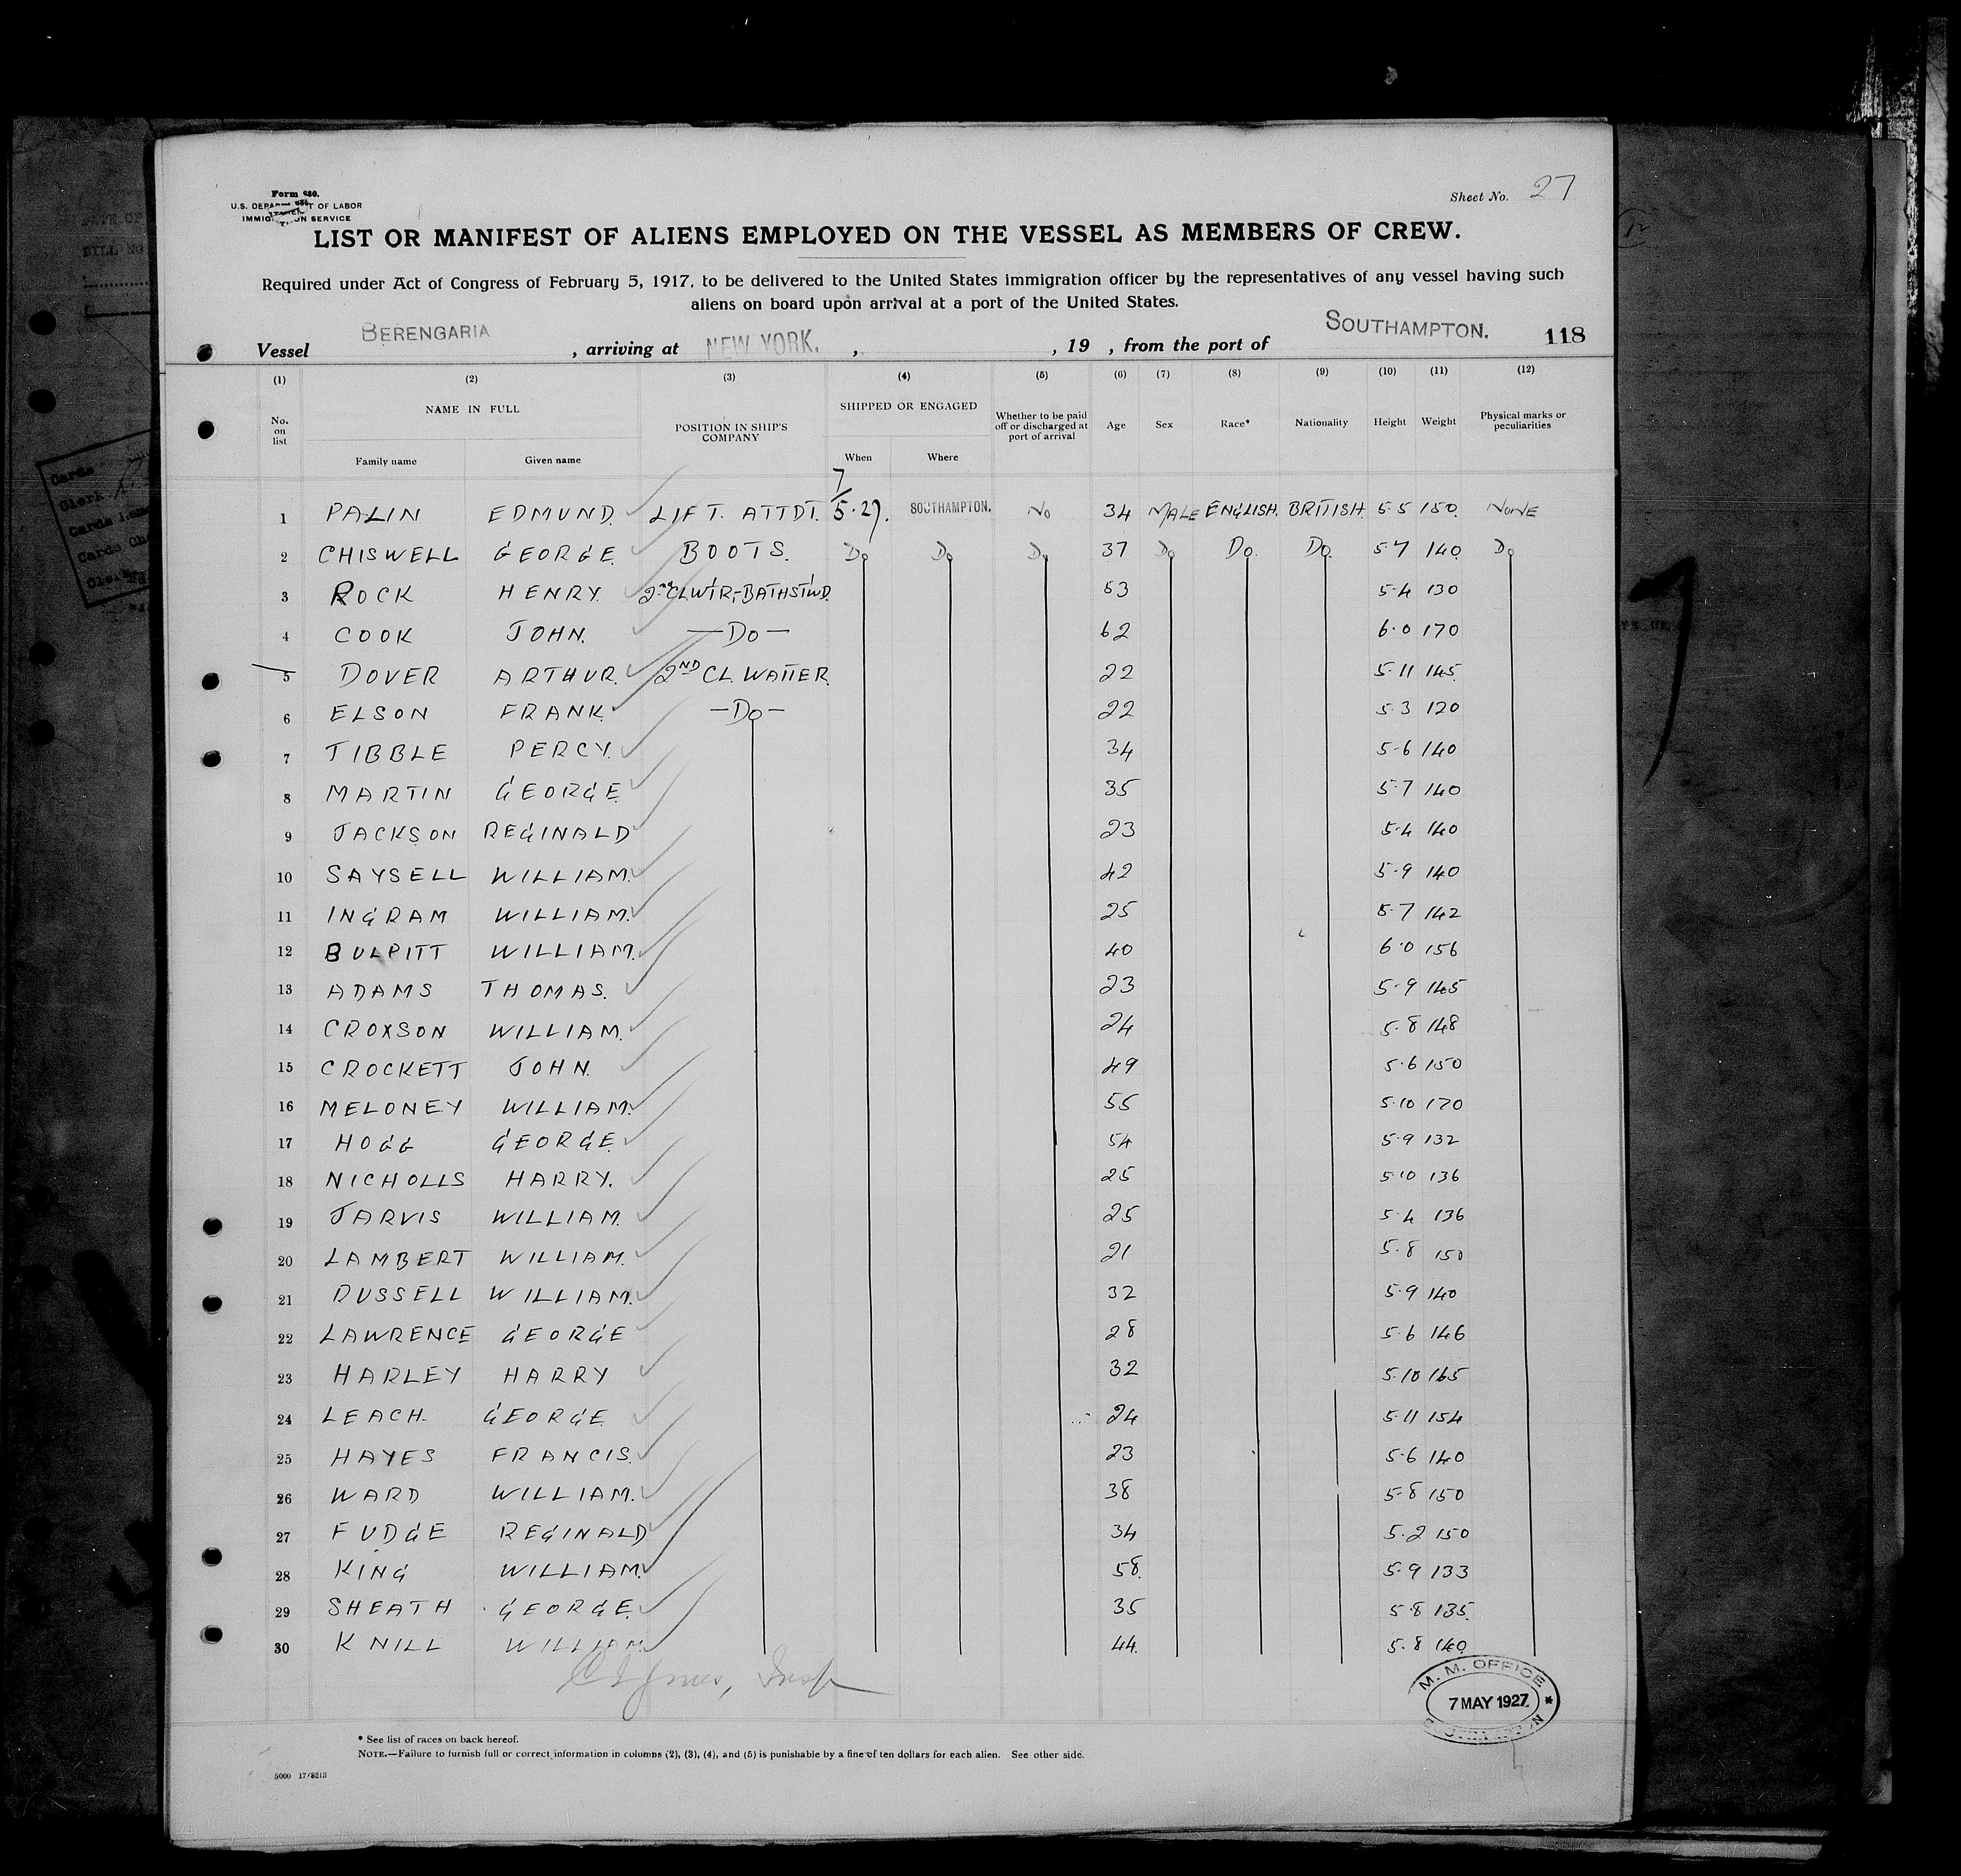 Sheet No. 27
Form 680.
U.S. DEPARTMENT OF LABOR
IMMIGRATION SERVICE
LIST OR MANIFEST OF ALIENS EMPLOYED ON THE VESSEL AS MEMBERS OF CREW.
Required under Act of Congress of February 5, 1917, to be delivered to the United States immigration officer by the representatives of any vessel having such
aliens on board upon arrival at a port of the United States.
Vessel BERENGARIA , arriving at NEW YORK. , , 19 , from the port of SOUTHAMPTON. 118
(1) (2) (3) (4) (5) (6) (7) (8) (9) (10) (11) (12)
No. on list NAME IN FULL POSITION IN SHIP'S COMPANY SHIPPED OR ENGAGED Whether to be paid off or discharged at port of arrival Age Sex Race* Nationality Height Weight Physical marks or peculiarities
Family name Given name When Where
1 PALIN EDMUND. LIFT. ATTDT. 7/5.27. SOUTHAMPTON. No 34 MALE ENGLISH. BRITISH. 5 5 150. NONE
2 CHISWELL GEORGE. BOOTS. Do Do Do 37 Do Do. Do. 5.7 140. Do
3 ROCK HENRY. 2nd CL WTR,-BATHSTWD. 53 5-4 130
4 COOK JOHN. —Do— 62 6.0 170
5 DOVER ARTHUR. 2ND CL. WAITER. 22 5.11 145.
6 ELSON FRANK. —Do— 22 5.3 120
7 TIBBLE PERCY. 34 5-6 140
8 MARTIN GEORGE 35 5.7 140
9 JACKSON REGINALD 23 5.4 140
10 SAYSELL WILLIAM. 42 5.9 140
11 INGRAM WILLIAM. 25 5.7 142
12 BULPITT WILLIAM. 40 6.0 156
13 ADAMS THOMAS. 23 5.9 145
14 CROXSON WILLIAM. 24 5.8 148
15 CROCKETT JOHN. 49 5.6 150
16 MELONEY WILLIAM. 55 5.10 170
17 HOGG GEORGE. 54 5.9 132
18 NICHOLLS HARRY. 25 5.10 136
19 JARVIS WILLIAM. 25 5.4 136
20 LAMBERT WILLIAM. 21 5.8 150
21 RUSSELL WILLIAM. 32 5.9 140
22 LAWRENCE GEORGE 28 5.6 146
23 HARLEY HARRY 32 5.10 165
24 LEACH. GEORGE 24 5.11 154
25 HAYES FRANCIS. 23 5.6 140
26 WARD WILLIAM. 38 5.8 150
27 FUDGE REGINALD 34 5.2 150
28 KING WILLIAM. 58. 5.9 133
29 SHEATH GEORGE. 35 5.8 135.
30 KNILL WILLIAM. 44. 5.8 140.
M. M. OFFICE
7 MAY 1927
* See list of races on back hereof.
NOTE.—Failure to furnish full or correct information in columns (2), (3), (4), and (5) is punishable by a fine of ten dollars for each alien. See other side.
5000 17/8213